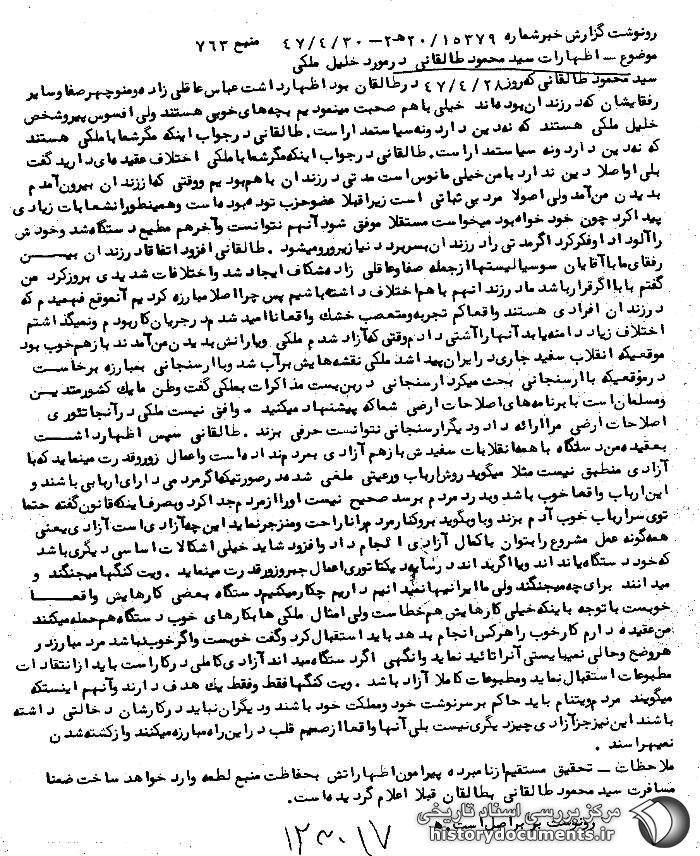 رونوشت گزارش خبر شماره ۱۵۳۷۹/۲۰ه۲ – ۴۷/۴/۳۰ منبع ۷۶۳
موضوع – اظهارات سید محمود طالقانی در مورد خلیل ملکی
سید محمود طالقانی که روز ۴۷/۴/۲۸ در طالقان بود اظهار داشت عباس عاقلی زاده و منوچهر صفا و سایر
رفقایشان که در زندان بوده‌اند خیلی با هم صحبت مینمودیم بچه‌های خوبی هستند ولی افسوس پیرو شخص
خلیل ملکی هستند که نه دین دارد و نه سیاستمدار است. طالقانی در جواب اینکه مگر شما با ملکی هستند
که نه دین دارد و نه سیاستمدار است. طالقانی در جواب اینکه مگر شما با ملکی اختلاف عقیده‌ای دارید گفت
بلی او اصلا دین ندارد با من خیلی مانوس است مدتی در زندان با هم بودیم و وقتی که از زندان بیرون آمدم
بدیدن من آمد ولی اصولا مرد بی ثباتی است زیرا قبلا عضو حزب توده بوده است و همینطور انشعابات زیادی
پیدا کرد چون خود خواه بود میخواست مستقلا موفق شود آنهم نتوانست و آخر هم مطیع دستگاه شد و خودش
را آلود او فکر کرد اگر مدتی را در زندان بسر برد دنیا زیر و رو میشود. طالقانی افزود اتفاقا در زندان بین
رفقای ما با آقایان سوسیالیستها از جمله صفا و عاقلی زاده شکاف ایجاد شد و اختلافات شدیدی بروز کرد من
گفتم بابا اگر قرار باشد ما در زندان هم با هم اختلاف داشته باشیم پس چرا اصلا مبارزه کردیم آنموقع فهمیدم که
در زندان افرادی هستند واقعا کم تجربه و متعصب خشک واقعا ناامید شدم در جریان کار بودم و نمیگذاشتم
اختلاف زیاد دامنه یابد آنها را آشتی دادم وقتی که آزاد شدم ملکی و یارانش بدیدن من آمدند باز هم خوب بود
موقعیکه انقلاب سفید جاری در ایران پیدا شد ملکی نقشه‌هایش بر آب شد و با ارسنجانی بمبارزه برخاست
در موقعیکه با ارسنجانی بحث میکرد ارسنجانی در بن بست مذاکرات بملکی گفت وطن ما یک کشور متدین
و مسلمان است با برنامه‌های اصلاحات ارضی شما که پیشنهاد میکنید موافق نیست ملکی در آنجا تئوری
اصلاحات ارضی مرا ارائه داد و دیگر ارسنجانی نتوانست حرفی بزند. طالقانی سپس اظهار داشت
بعقیده من دستگاه با همه انقلابات سفیدش باز هم آزادی بمردم نداده است و اعمال زور و قدرت مینماید که با
آزادی منطبق نیست مثلا میگوید روش ارباب و رعیتی ملغی شده در صورتیکه اگر مردمی دارای اربابی باشند و
این ارباب واقعا خوب باشد و بدرد مردم برسد صحیح نیست او را از مردم جدا کرد و بصرف اینکه قانون گفته حتما
توی سر ارباب خوب آدم بزند و با و بگوید برو کنار مردم را ناراحت و منزجر نماید این چه آزادی است آزادی یعنی
همه گونه عمل مشروع را بتوان با کمال آزادی انجام داد و افزود شاید خیلی اشکالات اساسی دیگری باشد
که خود دستگاه بداند و یا اگر نداند در سایه دیکتاتوری اعمال جبر و زور و قدرت مینماید. ویت کنگها میجنگند و
میدانند برای چه میجنگند ولی ما ایرانیها نمیدانیم داریم چکار میکنیم دستگاه بعضی کارهایش واقعا
خوبست با توجه با اینکه خیلی کارهایش هم خطاست ولی امثال ملکی ها بکارهای خوب دستگاه هم حمله میکنند
من عقیده دارم کار خوب را هر کس انجام بدهد باید استقبال کرد و گفت خوبست و اگر خوب نباشد مرد مبارز در
هر وضع و حالی نمیبایستی آنرا تائید نماید وانگهی اگر دستگاه میداند آزادی کاملی در کار است باید از انتقادات
مطبوعات استقبال نماید و مطبوعات کاملا آزاد باشد. ویت کنگها فقط و فقط یک هدف دارند و آنهم اینستکه
میگویند مردم ویتنام باید حاکم بر سرنوشت خود و مملکت خود باشند و دیگران نباید در کارشان دخالتی داشته
باشند این نیز جز آزادی چیز دیگری نیست بلی آنها واقعا از صمیم قلب در این راه مبارزه میکنند و از کشته شدن
نمیهراسند.
ملاحظات – تحقیق مستقیم از نامبرده پیرامون اظهاراتش بحفاظت منبع لطمه وارد خواهد ساخت ضمنا
مسافرت سید محمود طالقانی بطالقان قبلا اعلام گردیده است.
رونوشت برابر اصل است
مرکز بررسی اسناد تاریخی
historydocuments.ir